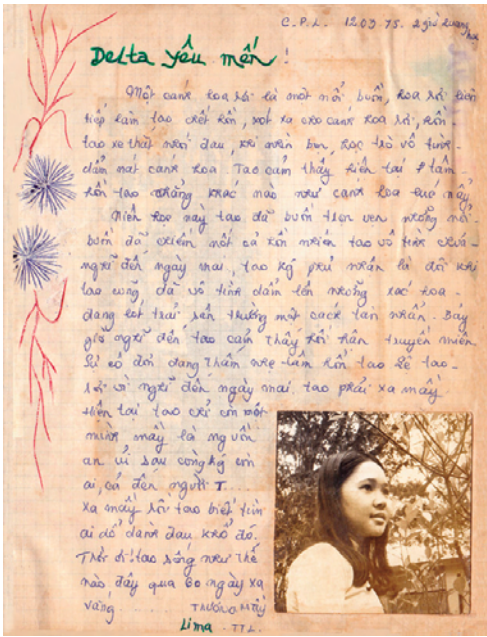 C.P.L. 12.03.75. 2 giờ quang
Delta yêu mến!
Một cánh hoa rơi là một nỗi buồn, hoa rơi liên
tiếp làm tao chết lên, xót xa cho cánh hoa rơi, hồn
tao xe thắt nhói đau, khi nhìn bọn học trò vô tình
dẫm nát cánh hoa. Tao cảm thấy hiện tại tâm
hồn tao chẳng khác nào như cánh hoa quá mầy,
Niên học này tao đã buồn trọn vẹn những nỗi
buồn đã chiếm hết cả hồn nhiên tao vô tình chưa
nghĩ đến ngày mai, tao ký phủ nhận là đôi khi
tao cũng đã vô tình dẫm lên những xác hoa
đang rớt trải sân trường một cách tàn nhẫn. Bây
giờ nghĩ đến tao cảm thấy hối hận truyền miên
Sự cô đơn đang thấm nhẹ tâm hồn tao Sẽ tao
sợ vì nghĩ đến ngày mai tao phải xa mầy
Hiện tại tao chỉ còn một
mình mầy là nguồn
an ủi sau còn ký còn
ai, cả đến người T....
xa mầy rồi tao biết tìm
ai để đành đau khổ đó.
Thôi đi! tao sống như thế
nào đây qua 60 ngày xa
vắng ........ Thương mầy
Lima. TTL.